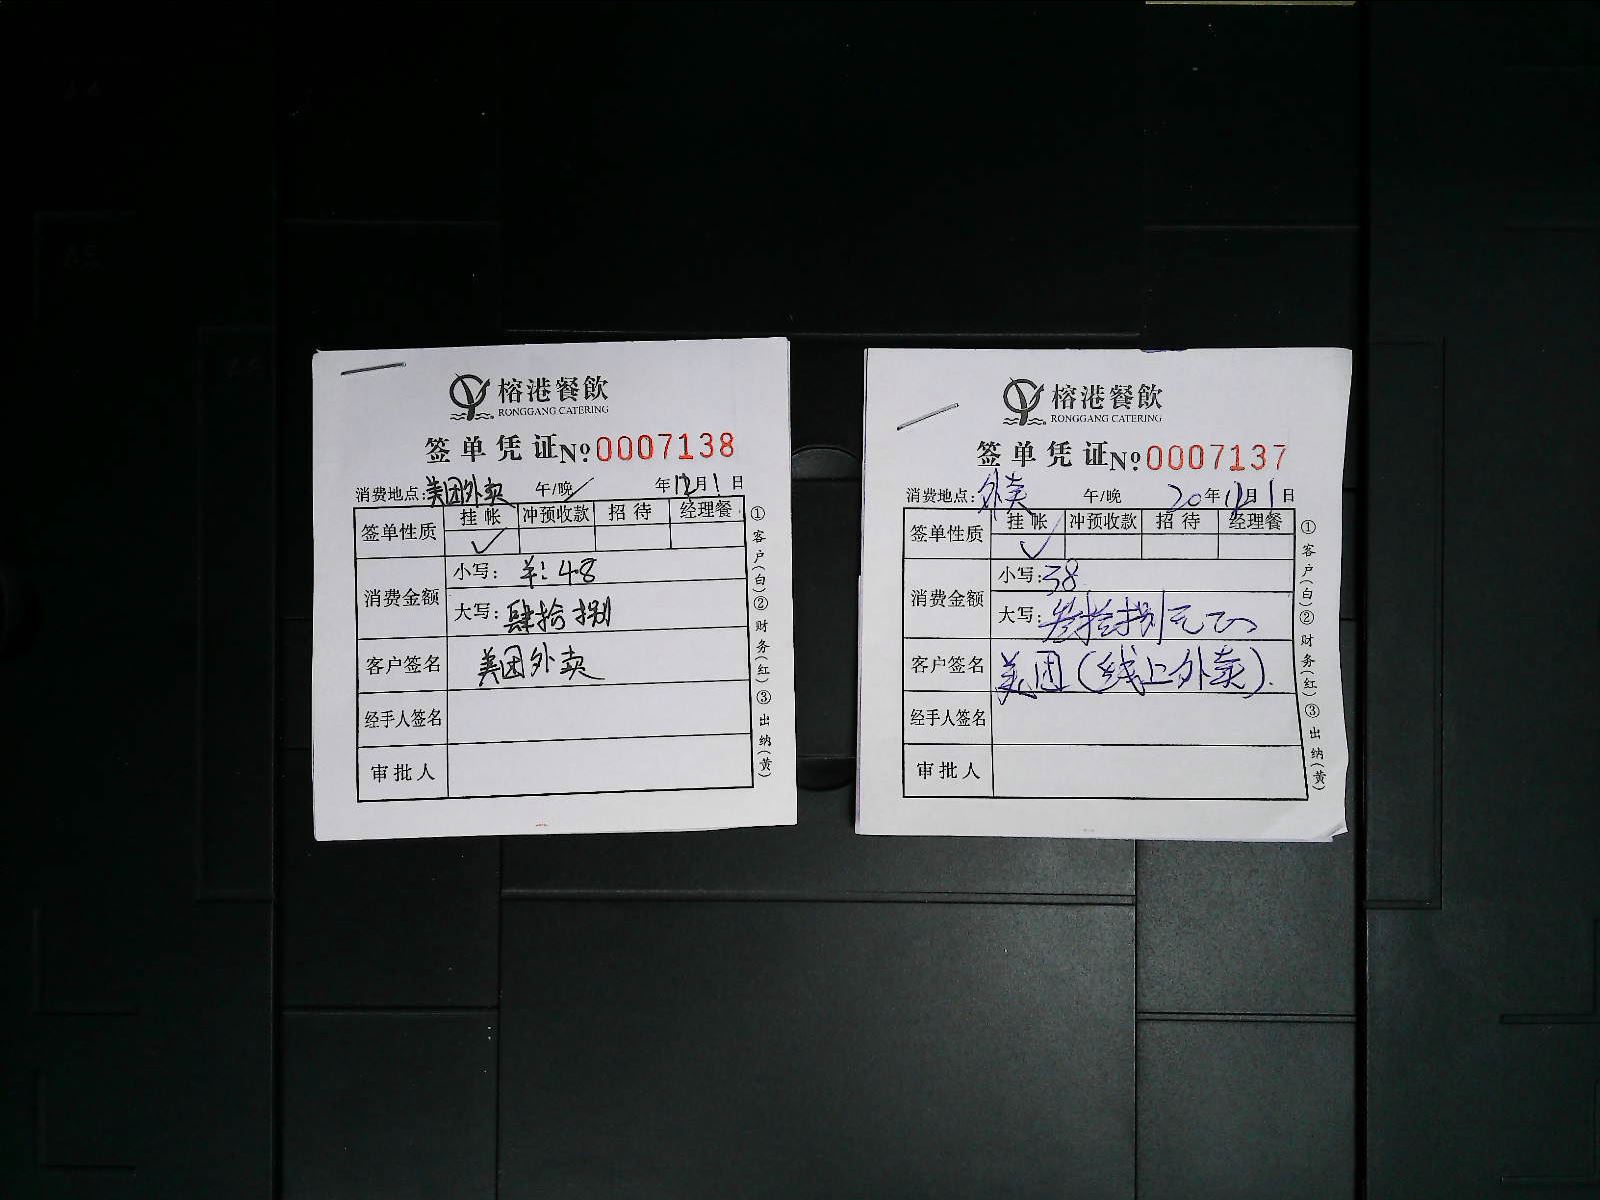 榕港餐飲
RONGGANG CATERING
签单凭证№0007138
消费地点:美团外卖 午/晚 年12月1日
签单性质 挂帐 冲预收款 招待 经理餐
✓
消费金额 小写: ¥:48
大写: 肆拾捌
客户签名 美团外卖
经手人签名
审批人
①客户(白)②财务(红)③出纳(黄)
榕港餐飲
RONGGANG CATERING
签单凭证№0007137
消费地点:外卖 午/晚 20年12月1日
签单性质 挂帐 冲预收款 招待 经理餐
✓
消费金额 小写:38
大写:叁拾捌元正
客户签名 美团(线上外卖).
经手人签名
审批人
①客户(白)②财务(红)③出纳(黄)